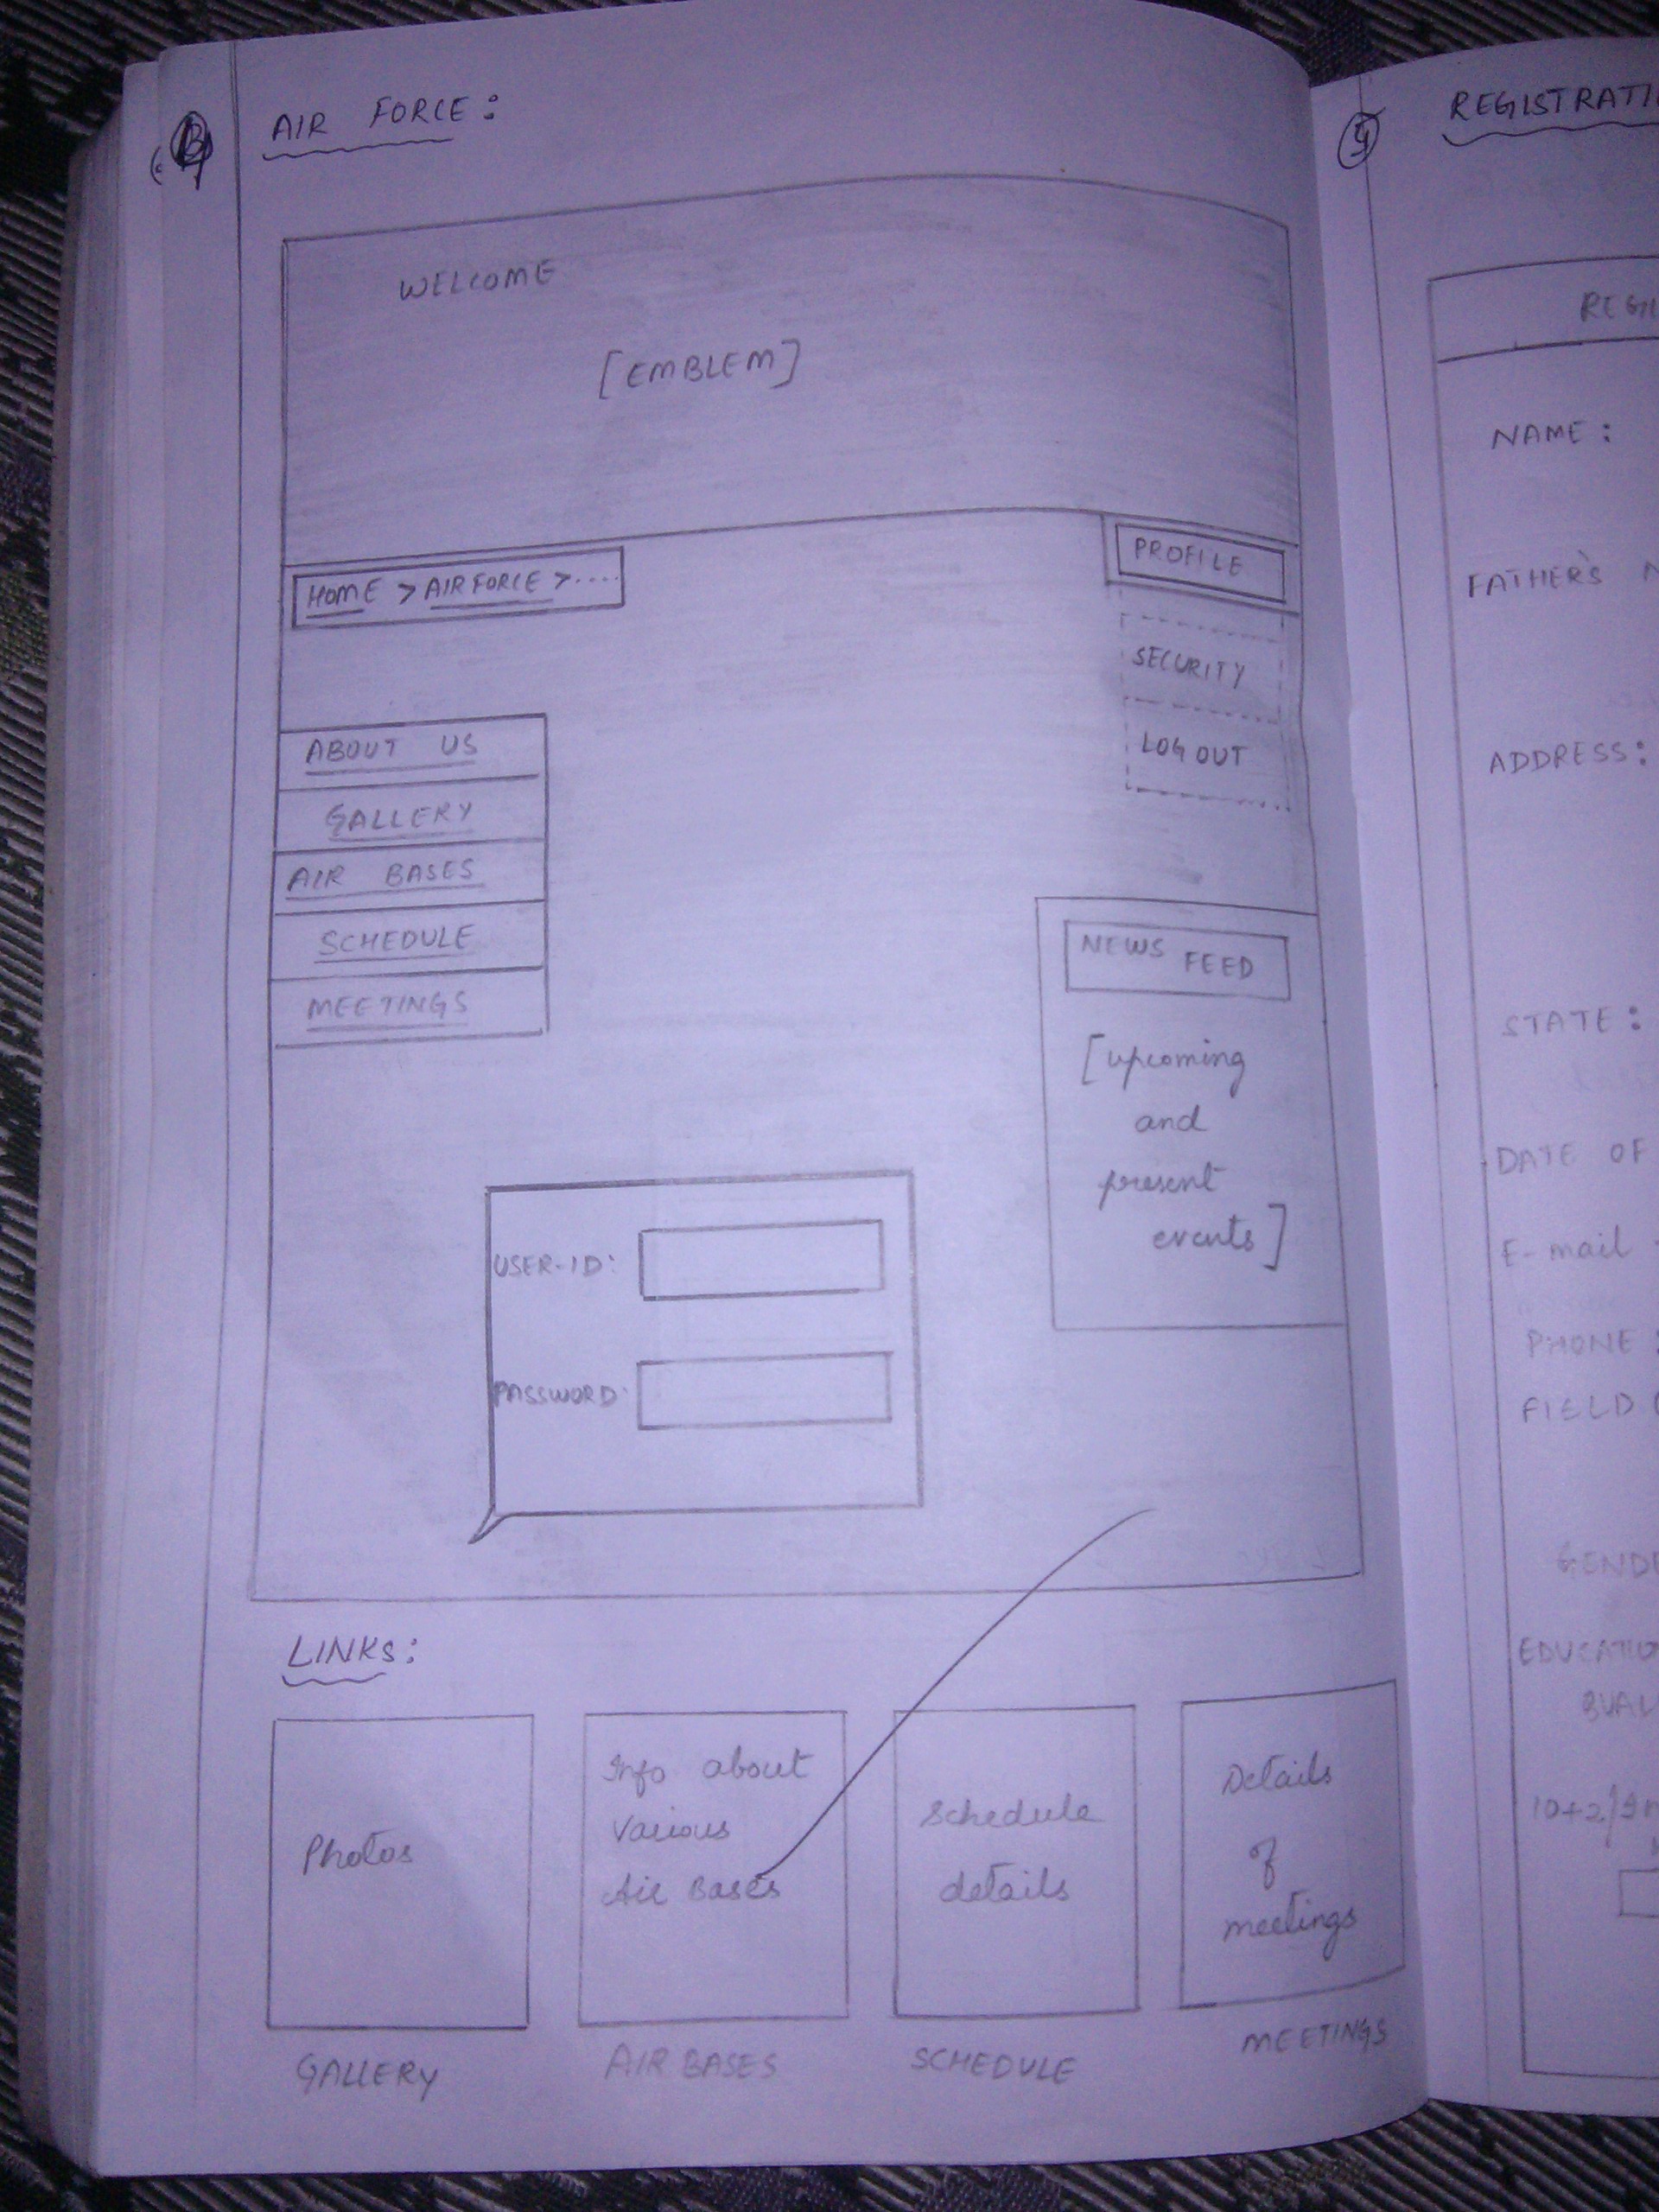 AIR FORCE:
WELCOME
[EMBLEM]
HOME > AIR FORCE > ....
PROFILE
SECURITY
LOG OUT
ABOUT US
GALLERY
AIR BASES
SCHEDULE
MEETINGS
NEWS FEED
[upcoming
and
present
events]
USER-ID:
PASSWORD:
LINKS:
Photos
Info about
Various
Air Bases
Schedule
details
Details
of
meetings
GALLERY
AIR BASES
SCHEDULE
MEETINGS
5
REGISTRATI
REGI
NAME:
FATHER'S N
ADDRESS:
STATE:
DATE OF
E-mail
PHONE:
FIELD
GENDE
EDUCATIO
QUAL
10+2/